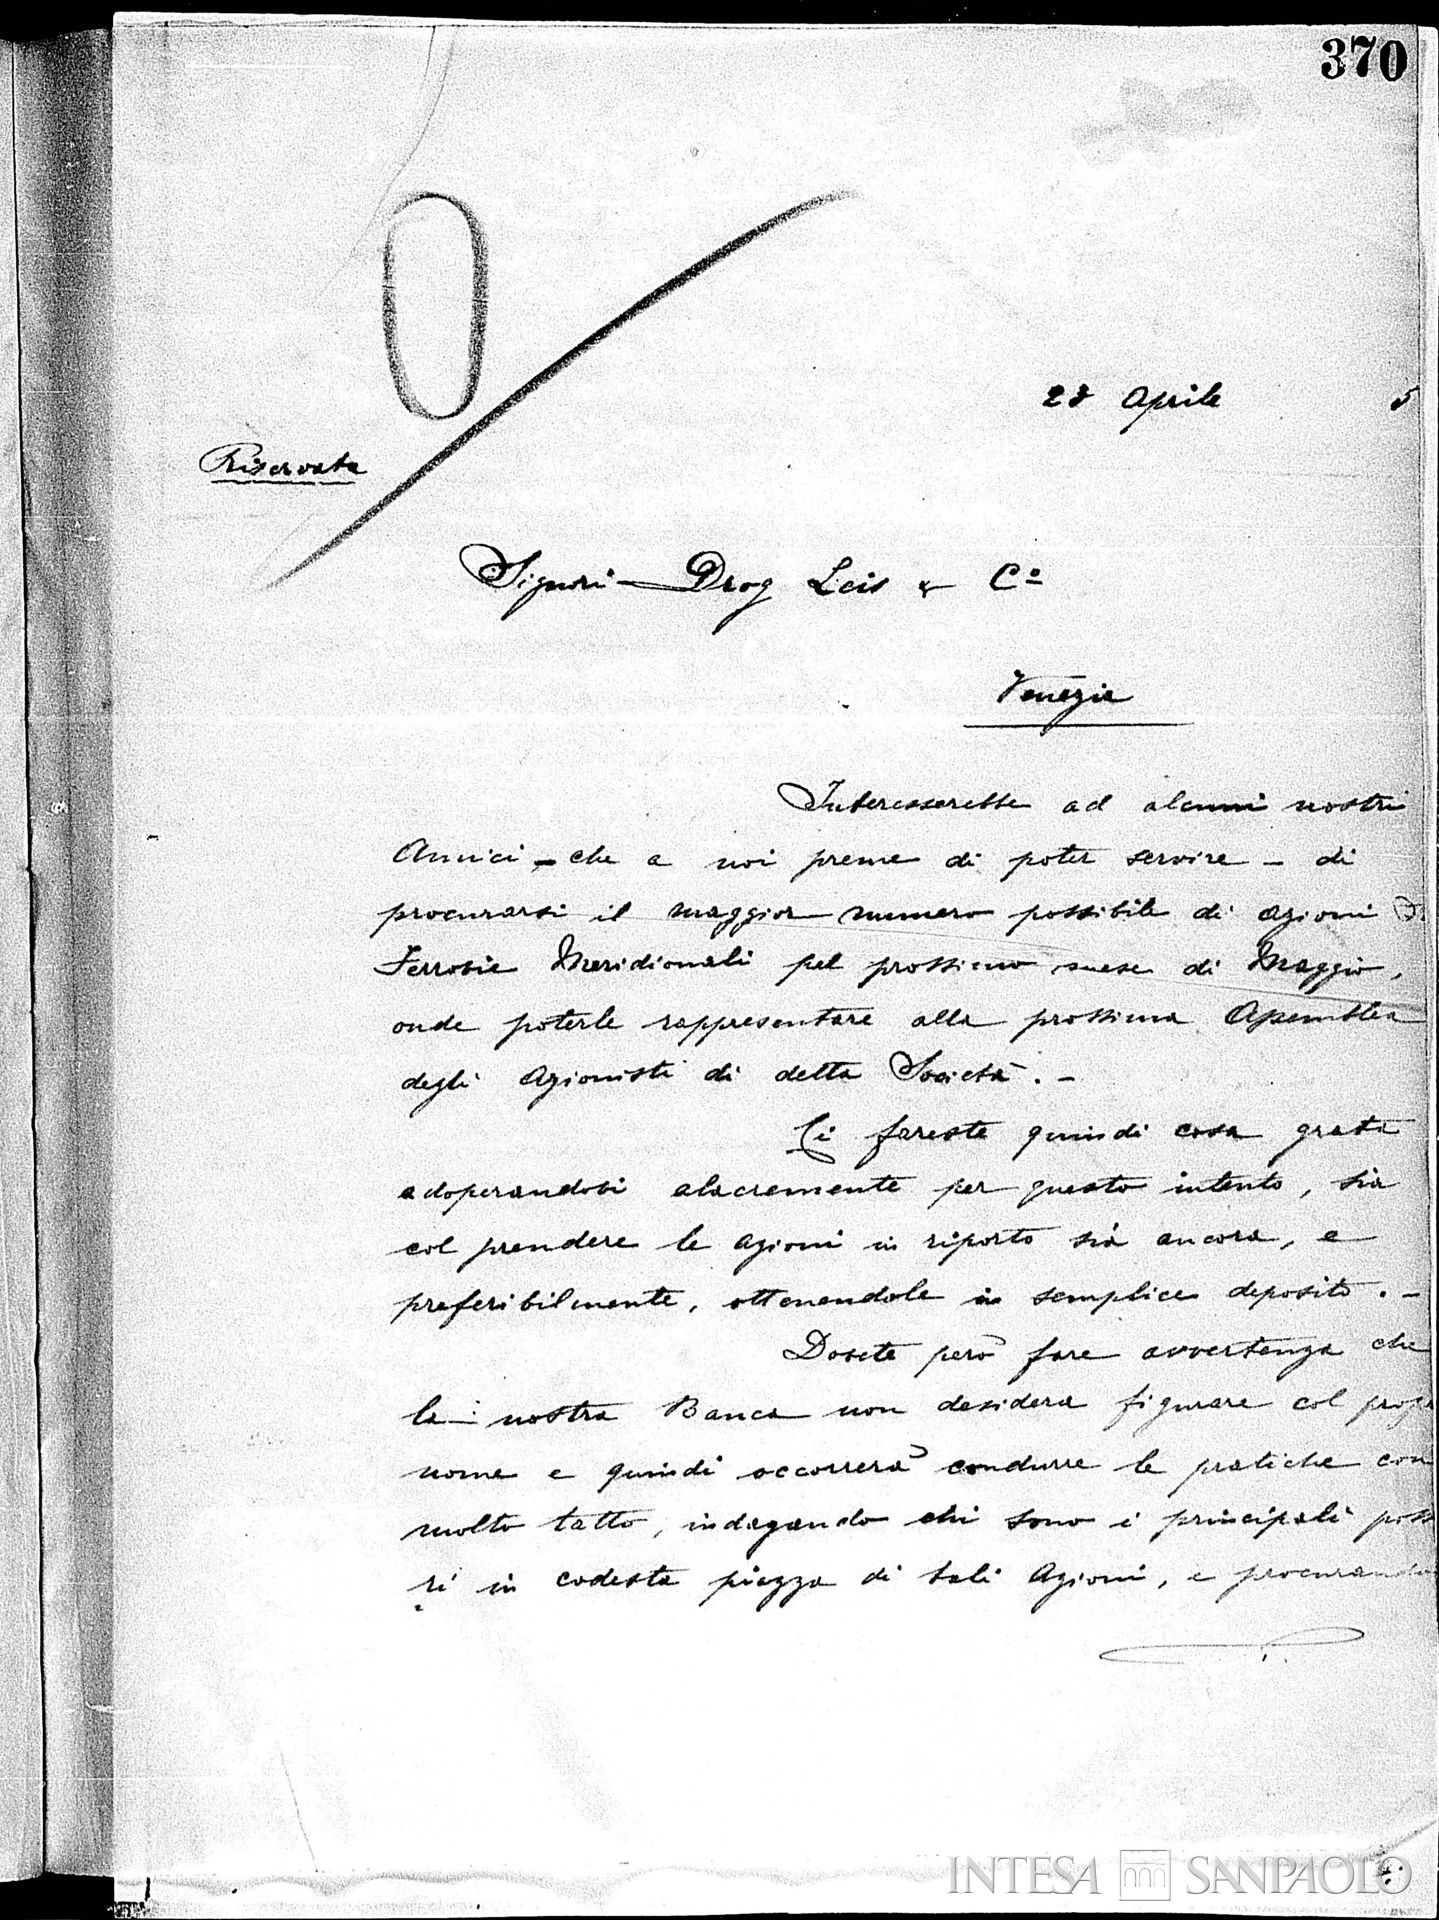 370
Aprile 5
Riservata
Signori Drog Leis & Cº
Venezia
Interesserebbe ad alcuni nostri
Amici - che a noi preme di poter servire - di
procurarsi il maggior numero possibile di azioni
Ferrovie Meridionali pel prossimo mese di Maggio,
onde poterle rappresentare alla prossima Assemblea
degli Azionisti di detta Società. -
Ci fareste quindi cosa grata
adoperandovi alacremente per questo intento, sia
col prendere le azioni in riporto sia ancora, e
preferibilmente, ottenendole in semplice deposito. -
Dovete però fare avvertenza che
la nostra Banca non desidera figurare col
nome e quindi occorrerà condurre le pratiche con
molto tatto, indagando chi sono i principali poss
ri in codesta piazza di tali Azioni, e procurando
INTESA SANPAOLO